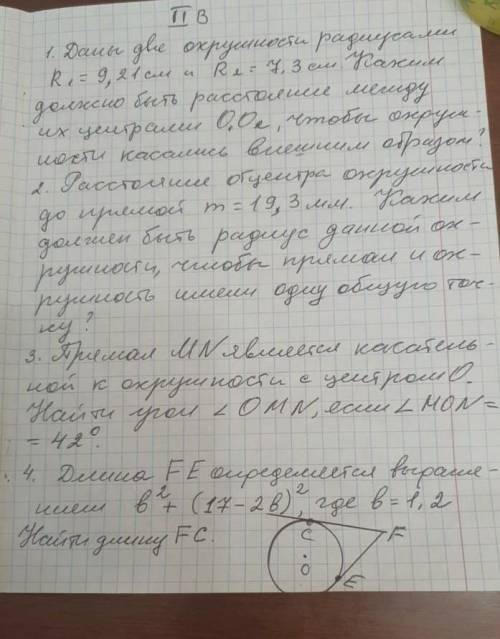 II В
1. Даны две окружности радиусами
R₁ = 9,21 см и R₂ = 7,3 см Каким
должно быть расстояние между
их центрами O₁O₂, чтобы окруж-
ности касались внешним образом?
2. Расстояние от центра окружности
до прямой m = 19,3 мм. Каким
должен быть радиус данной ок-
ружности, чтобы прямая и ок-
ружность имели одну общую точ-
ку?
3. Прямая MN является касатель-
ной к окружности с центром O.
Найти угол ∠OMN, если ∠MON =
= 42°.
4. Длина FE определяется выраже-
нием в² + (17 - 2в)², где в = 1,2
Найти длину FC.
C
F
O
E